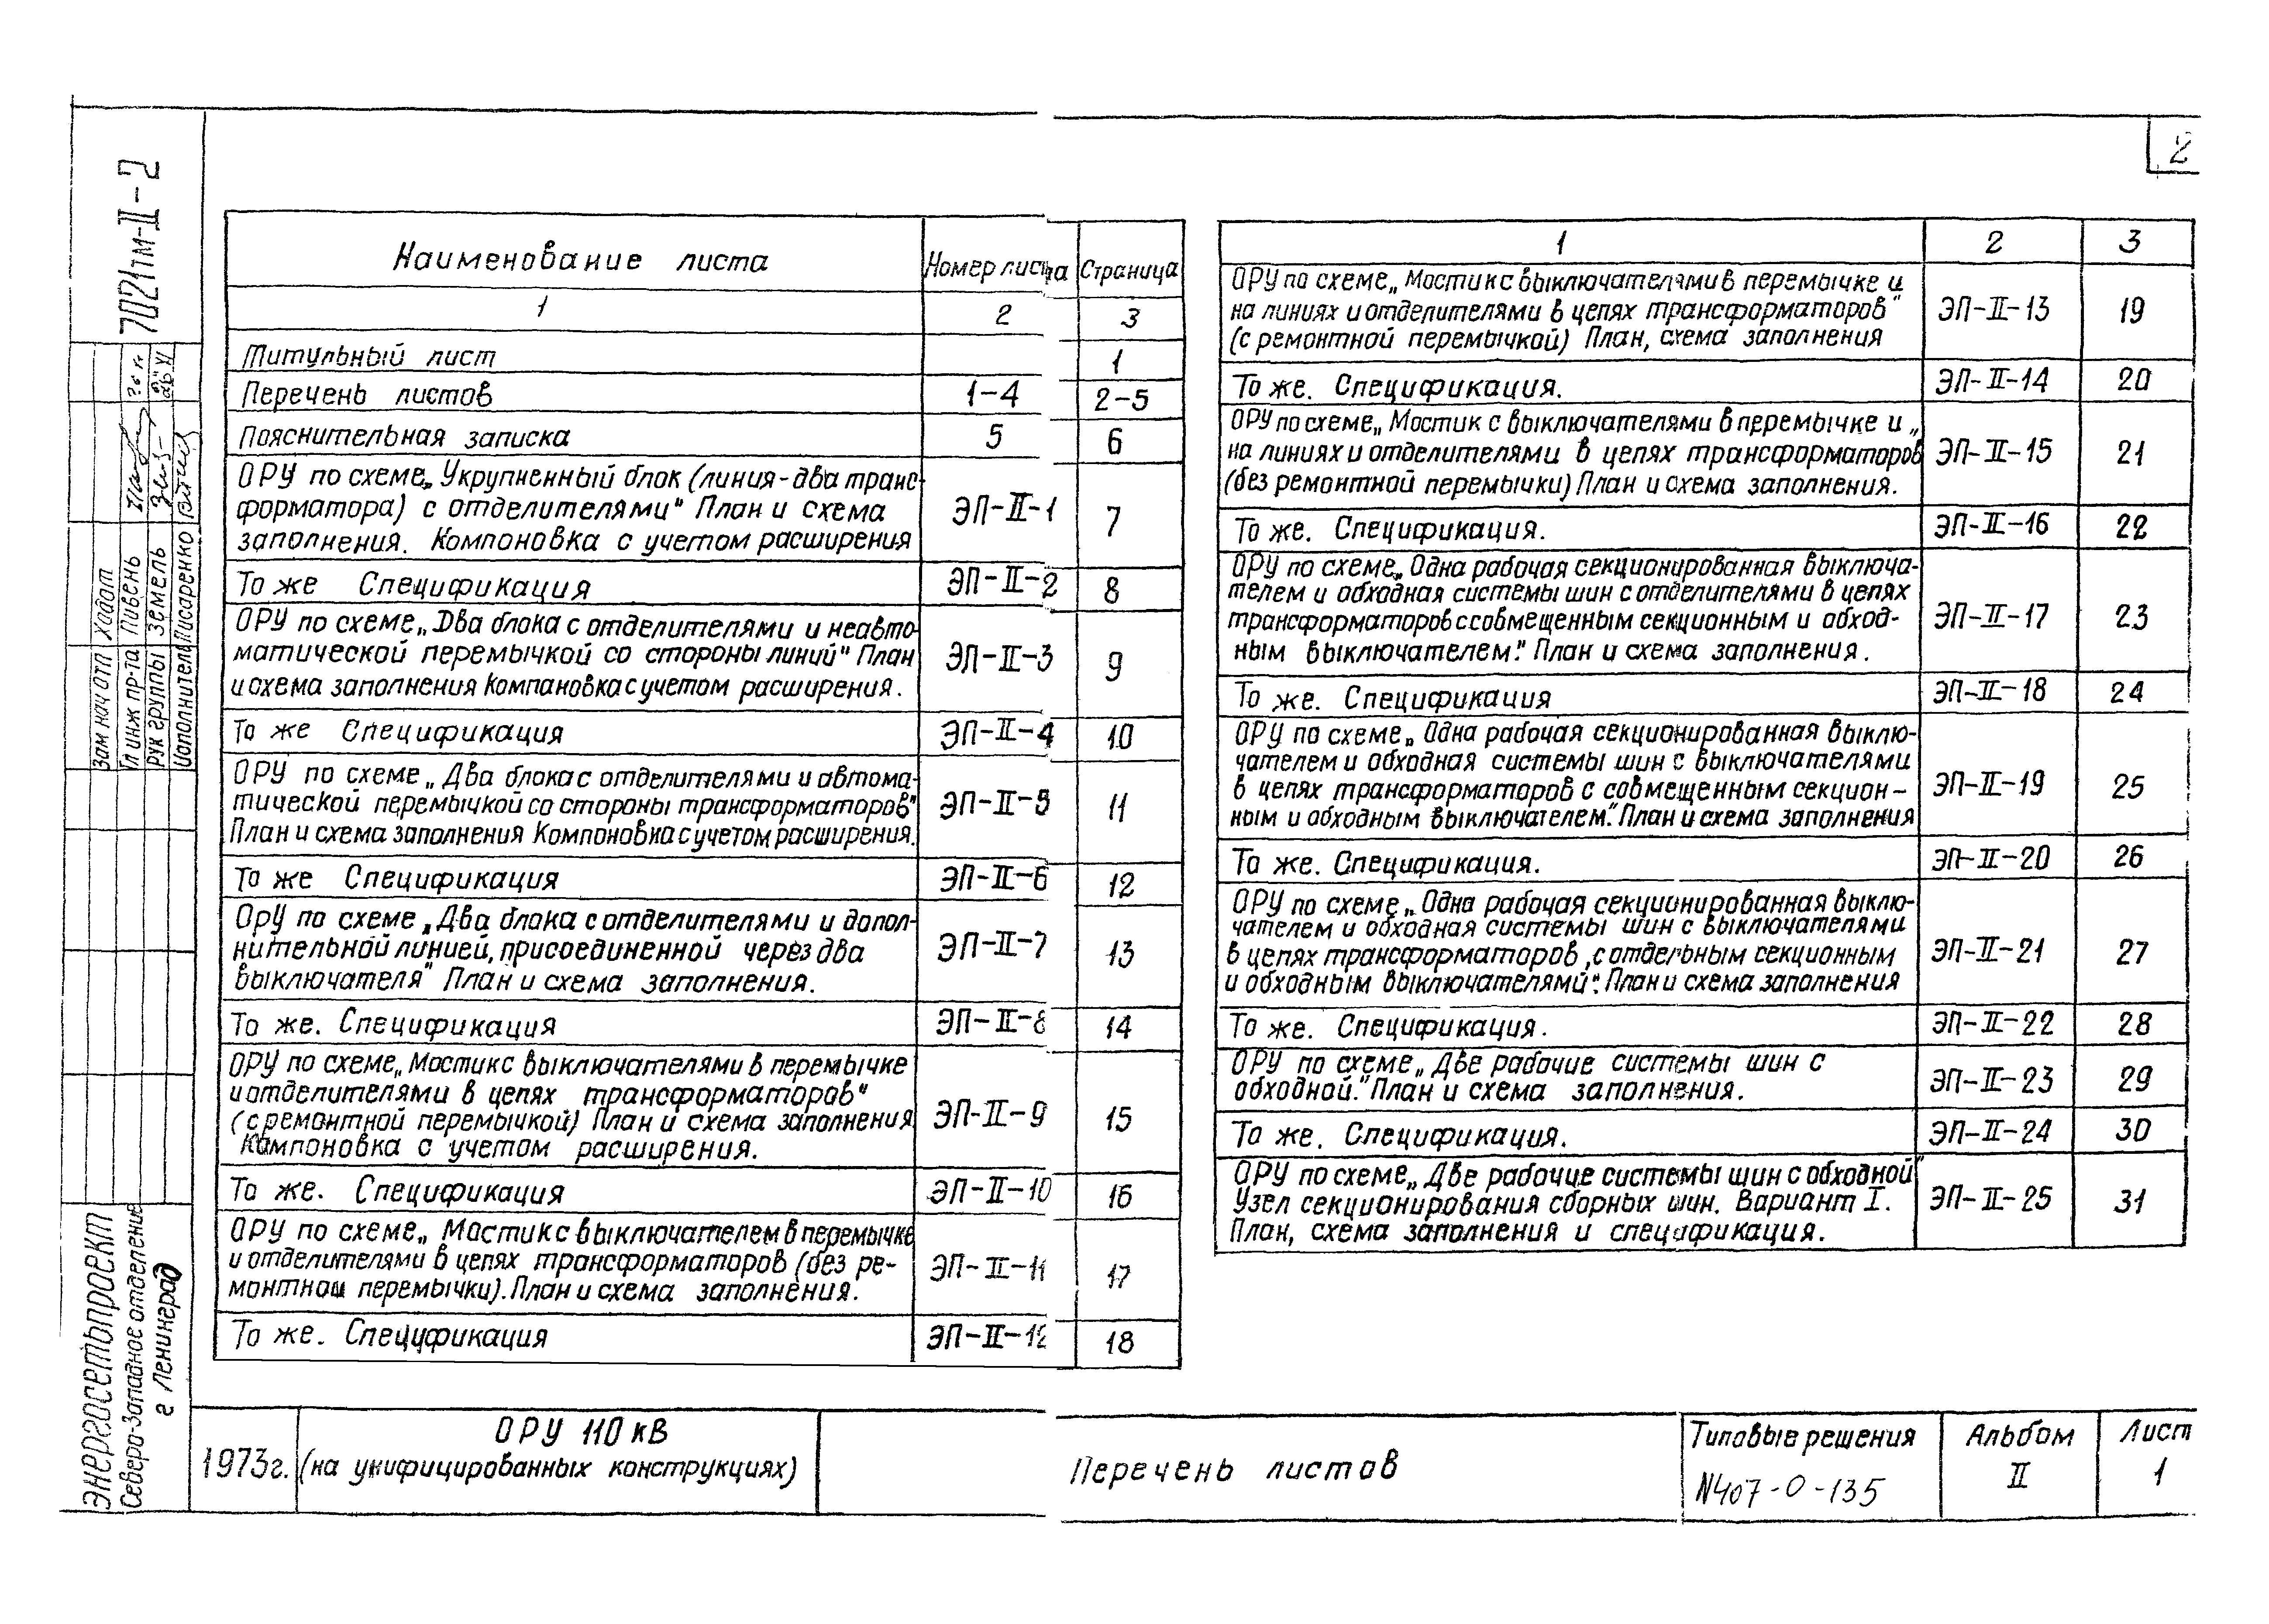 2
Наименование листа
Номер листа
Страница
1
2
3
Титульный лист
1
Перечень листов
1-4
2-5
Пояснительная записка
5
6
ОРУ по схеме „Укрупненный блок (линия-два транс-
форматора) с отделителями" План и схема
заполнения. Компоновка с учетом расширения
ЭП-II-1
7
То же Спецификация
ЭП-II-2
8
ОРУ по схеме „Два блока с отделителями и неавто-
матической перемычкой со стороны линий" План
и схема заполнения Компановка с учетом расширения.
ЭП-II-3
9
То же Спецификация
ЭП-II-4
10
ОРУ по схеме „Два блока с отделителями и автома-
тической перемычкой со стороны трансформаторов"
План и схема заполнения Компоновка с учетом расширения.
ЭП-II-5
11
То же Спецификация
ЭП-II-6
12
ОРУ по схеме „Два блока с отделителями и допол-
нительной линией, присоединенной через два
выключателя" План и схема заполнения.
ЭП-II-7
13
То же. Спецификация
ЭП-II-8
14
ОРУ по схеме „Мостик с выключателями в перемычке
и отделителями в цепях трансформаторов"
(с ремонтной перемычкой) План и схема заполнения
Компоновка с учетом расширения.
ЭП-II-9
15
То же. Спецификация
ЭП-II-10
16
ОРУ по схеме „Мостик с выключателем в перемычке
и отделителями в цепях трансформаторов (без ре-
монтной перемычки). План и схема заполнения.
ЭП-II-11
17
То же. Спецификация
ЭП-II-12
18
1
2
3
ОРУ по схеме „Мостик с выключателями в перемычке и
на линиях и отделителями в цепях трансформаторов"
(с ремонтной перемычкой) План, схема заполнения
ЭП-II-13
19
То же. Спецификация.
ЭП-II-14
20
ОРУ по схеме „Мостик с выключателями в перемычке и
на линиях и отделителями в цепях трансформаторов"
(без ремонтной перемычки) План и схема заполнения.
ЭП-II-15
21
То же. Спецификация.
ЭП-II-16
22
ОРУ по схеме „Одна рабочая секционированная выключа-
телем и обходная системы шин с отделителями в цепях
трансформаторов с совмещенным секционным и обход-
ным выключателем". План и схема заполнения.
ЭП-II-17
23
То же. Спецификация
ЭП-II-18
24
ОРУ по схеме „Одна рабочая секционированная выклю-
чателем и обходная системы шин с выключателями
в цепях трансформаторов с совмещенным секцион-
ным и обходным выключателем". План и схема заполнения
ЭП-II-19
25
То же. Спецификация.
ЭП-II-20
26
ОРУ по схеме „Одна рабочая секционированная выклю-
чателем и обходная системы шин с выключателями
в цепях трансформаторов, с отдельным секционным
и обходным выключателями". План и схема заполнения
ЭП-II-21
27
То же. Спецификация.
ЭП-II-22
28
ОРУ по схеме „Две рабочие системы шин с
обходной." План и схема заполнения.
ЭП-II-23
29
То же. Спецификация.
ЭП-II-24
30
ОРУ по схеме „Две рабочие системы шин с обходной"
Узел секционирования сборных шин. Вариант I.
План, схема заполнения и спецификация.
ЭП-II-25
31
7021тм-II-2
Зам нач отп Ходот
Гл инж пр-та Пивень
Рук группы Земель
Исполнитель Писаренко
ЭНЕРГОСЕТЬПРОЕКТ
Северо-Западное отделение
г Ленинград
1973г.
ОРУ 110 кВ
(на унифицированных конструкциях)
Перечень листов
Типовые решения
N407-0-135
Альбом
II
Лист
1